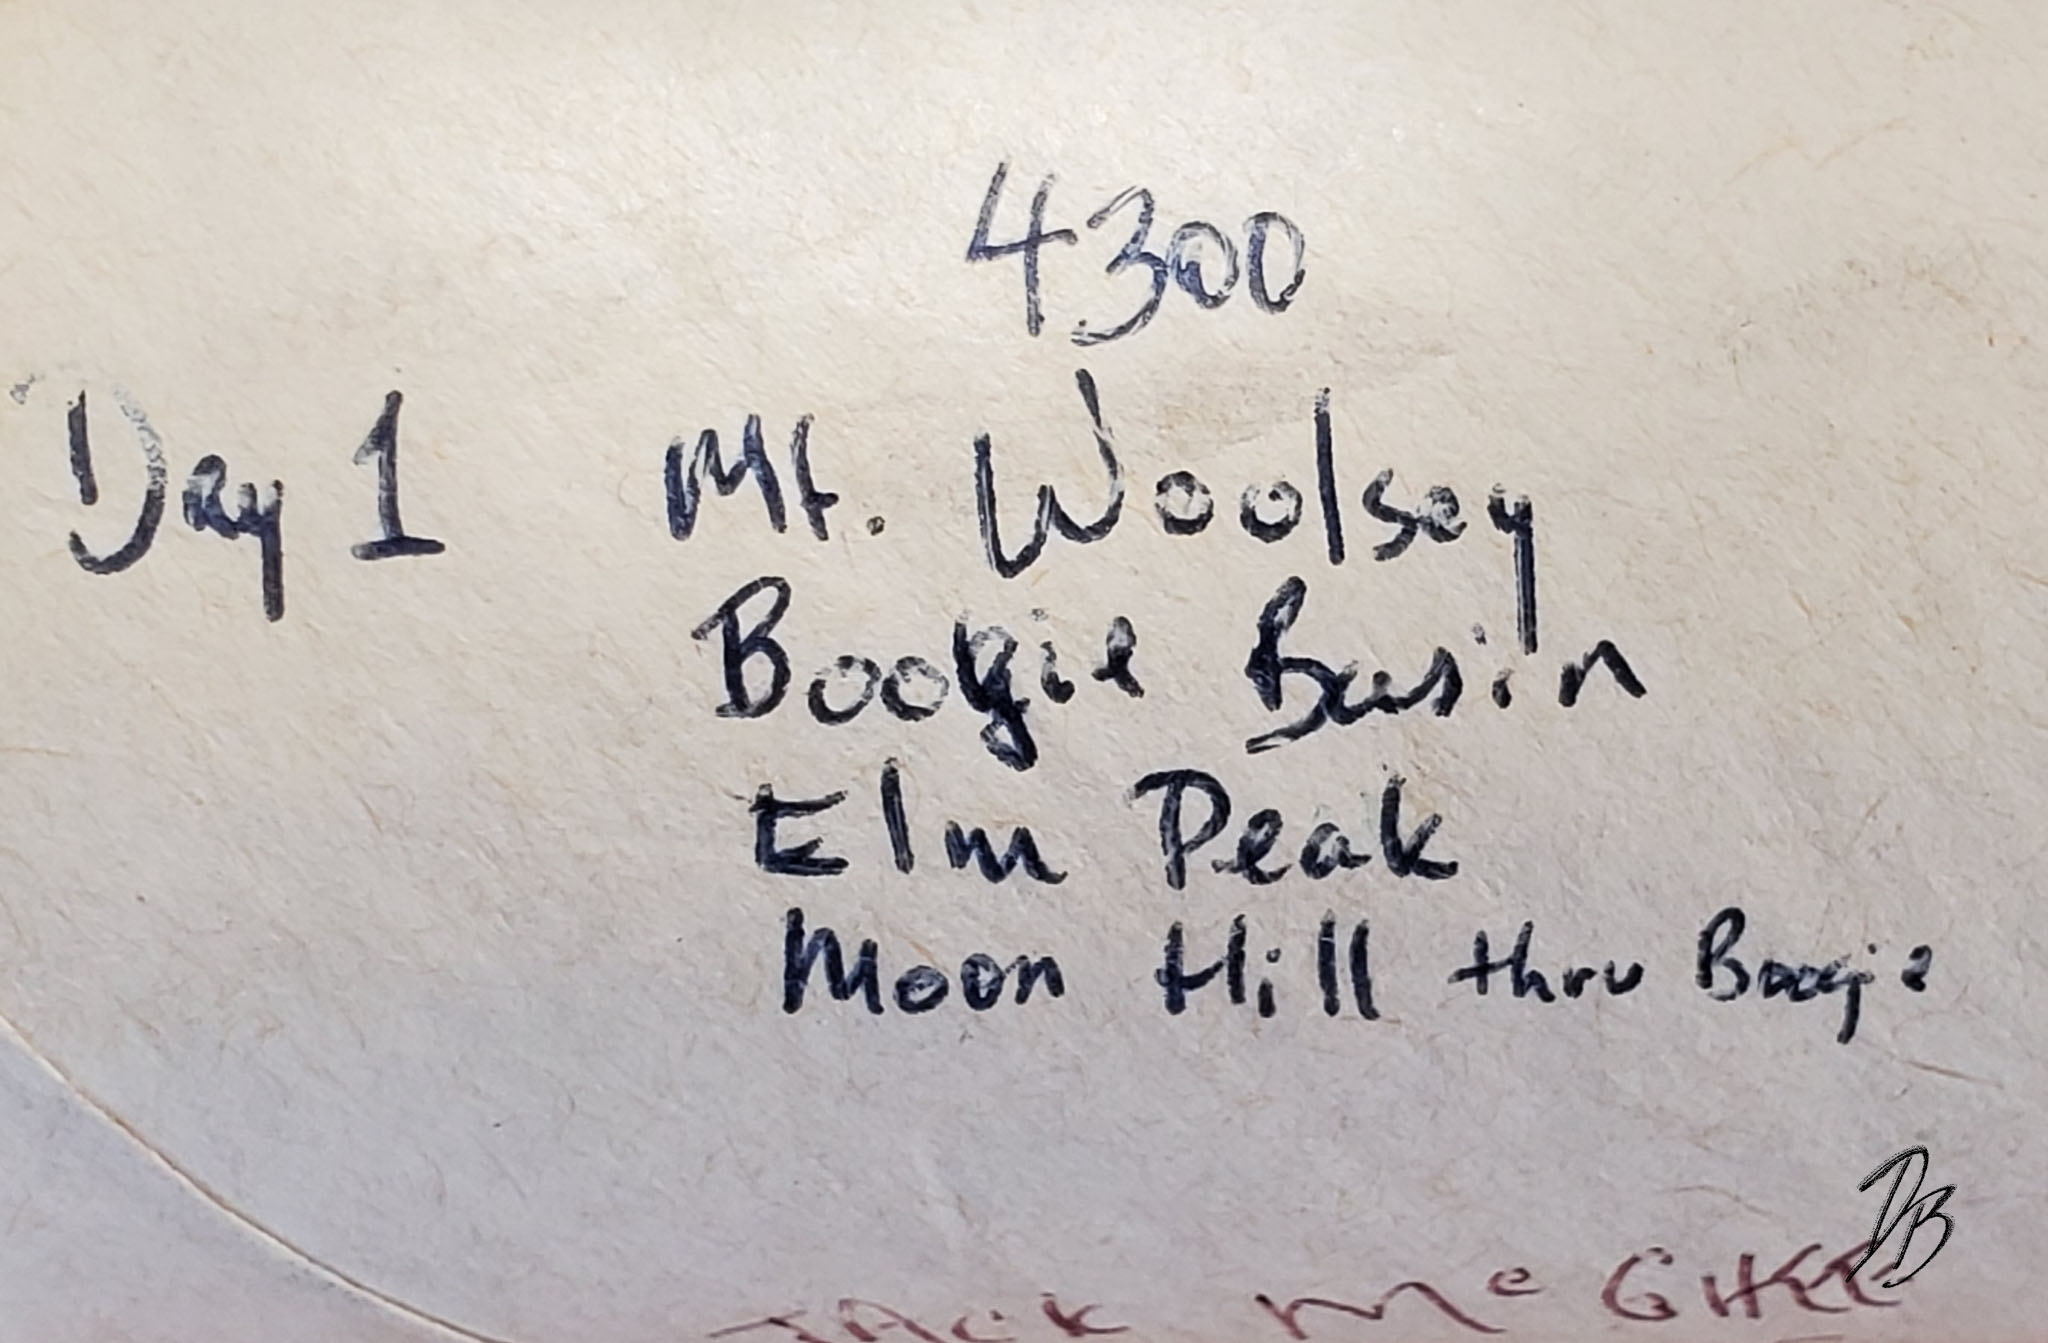 4300
Day 1 Mt. Woolsey
Boogie Basin
Elm Peak
Moon Hill thru Boogie
DB
JACK McGHEE